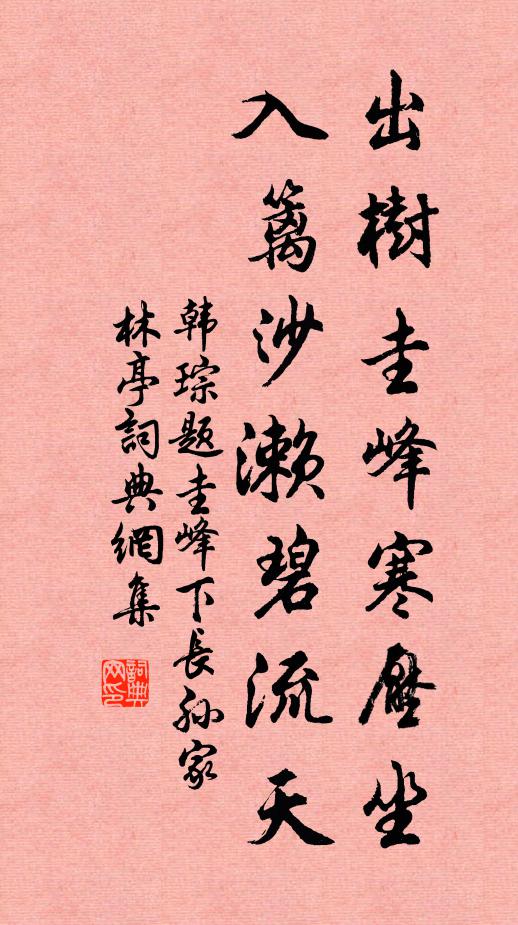 出樹圭峰寒壓坐
入籬沙瀨碧流天
韩琮题圭峰下長孙家
林亭詞典網集
詞典网印